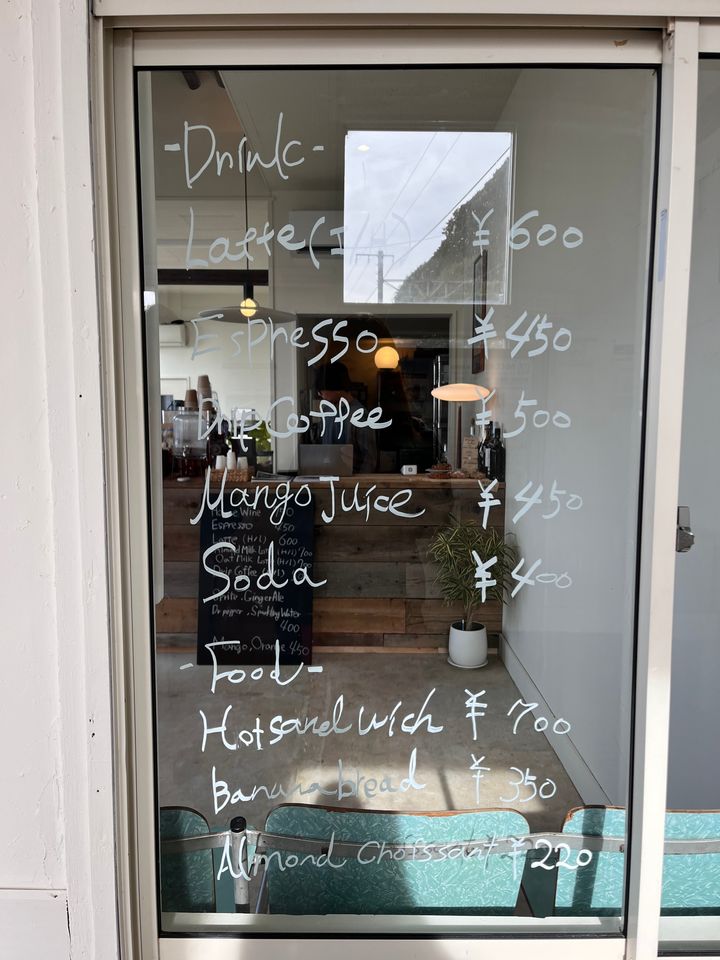 -Drink-
Latte (I/H) ¥600
Espresso ¥450
Drip Coffee ¥500
Mango Juice ¥450
Soda ¥400
-Food-
Hot sandwich ¥700
Banana bread ¥350
Almond Choissant ¥220
Wine
Espresso 450
Latte (H/I) 600
Almond Milk Latte (H/I) 700
Oat Milk Latte (H/I) 700
Drip Coffee (H/I)
Sprite, Ginger Ale
Dr pepper, Sparkling Water
400
Mango, Orange 450